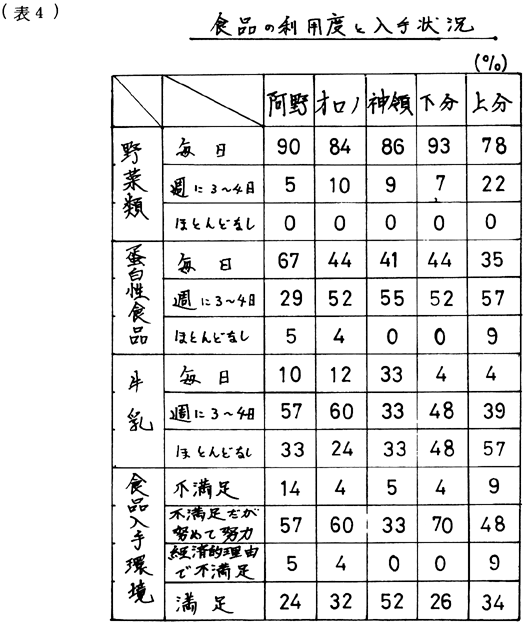 (表4)
食品の利用度と入手状況
(%)
阿野 オロノ 神領 下分 上分
野菜類 毎日 90 84 86 93 78
週に3〜4日 5 10 9 7 22
ほとんどなし 0 0 0 0 0
蛋白性食品 毎日 67 44 41 44 35
週に3〜4日 29 52 55 52 57
ほとんどなし 5 4 0 0 9
牛乳 毎日 10 12 33 4 4
週に3〜4日 57 60 33 48 39
ほとんどなし 33 24 33 48 57
食品入手環境 不満足 14 4 5 4 9
不満足だが
努めて努力 57 60 33 70 48
経済的理由
で不満足 5 4 0 0 9
満足 24 32 52 26 34